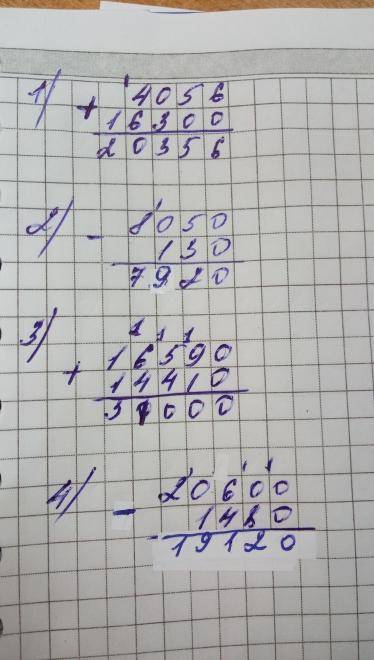 1)
1
+ 4056
16300
20356
2)
1
- 8050
130
7920
3)
1 1 1
16590
+ 14410
31000
4)
1 1 1
- 20600
1480
19120